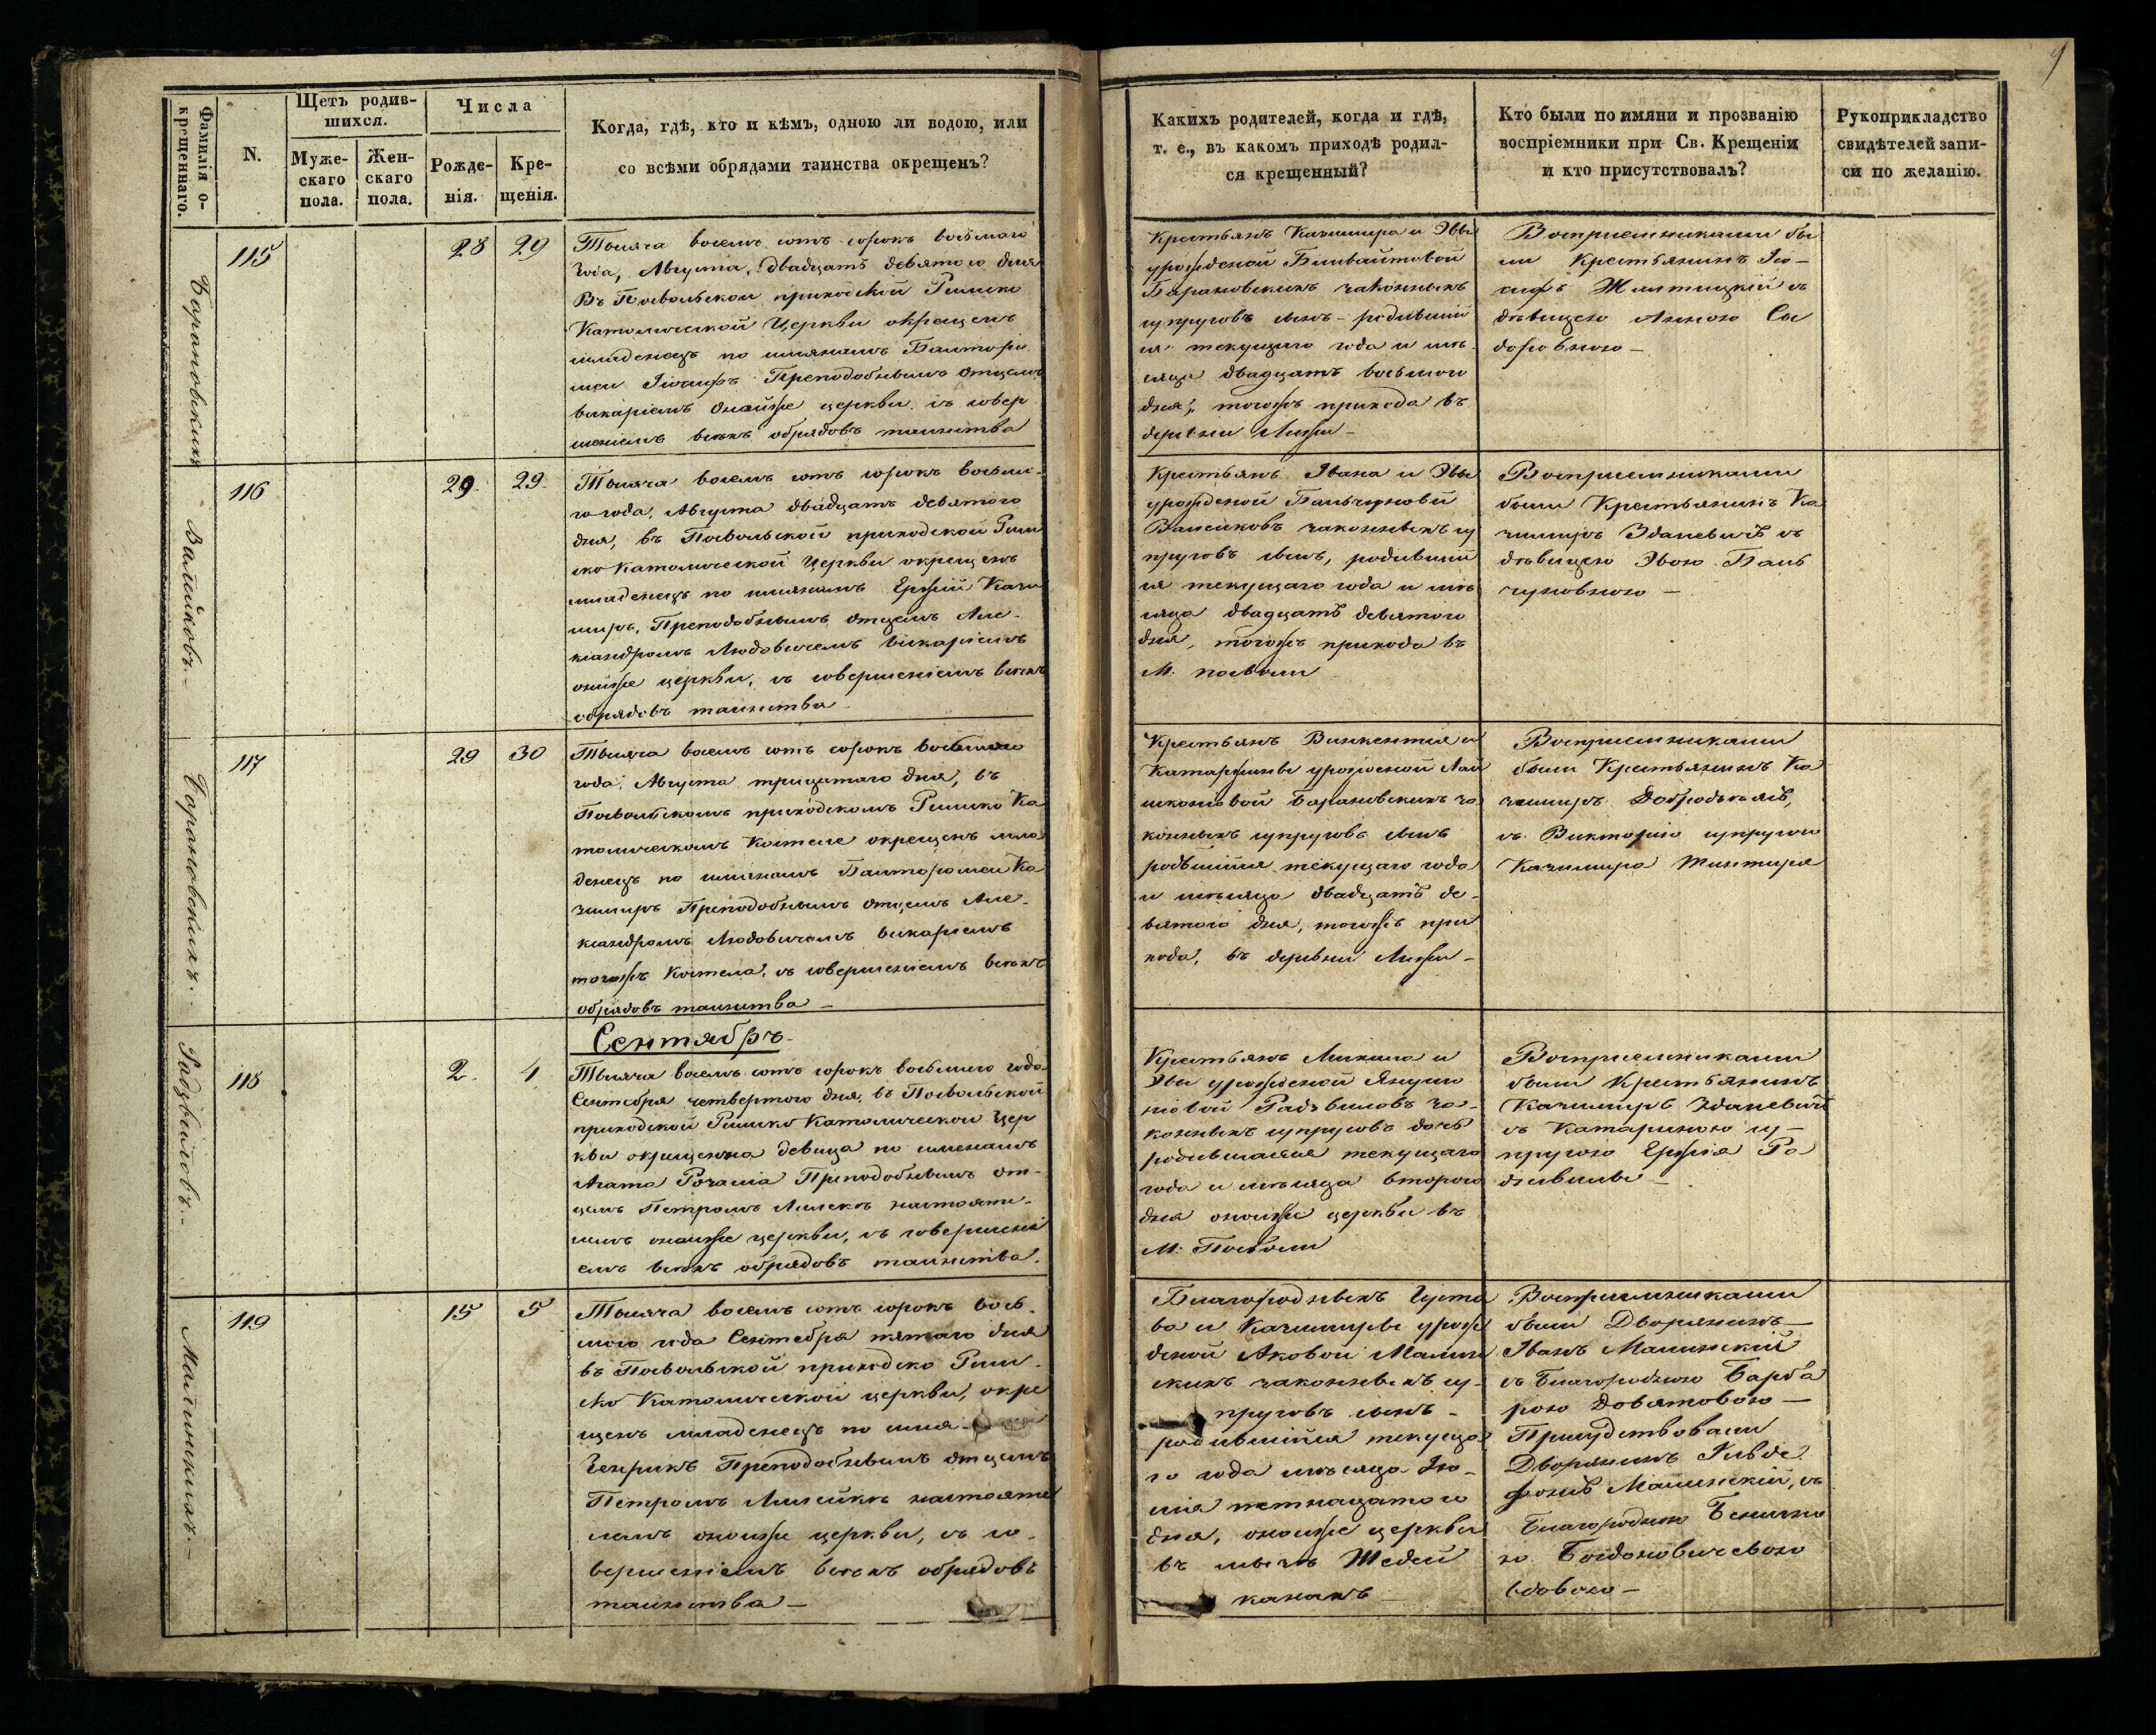 9
Фамилія о-
крещеннаго.
N.
Щетъ родив-
шихся.
Муже-
скаго
пола.
Жен-
скаго
пола.
Числа
Рожде-
нія.
Кре-
щенія.
Когда, гдѣ, кто и кѣмъ, одною ли водою, или
со всѣми обрядами таинства окрещенъ?
Какихъ родителей, когда и гдѣ,
т. е., въ какомъ приходѣ родил-
ся крещенный?
Кто были по имяни и прозванію
воспріемники при Св. Крещеніи
и кто присутствовалъ?
Рукоприкладство
свидѣтелей запи-
си по желанію.
Барановскихъ
115
28
29
Тысяча восемъ сотъ сорокъ восьмаго
года, Августа, двадцатъ девятого дня
Въ Посвольской приходской Римско
Католической Церкви окрещенъ
младенецъ по имянамъ Бартоло
меи Іосифъ Преподобнымъ Отцемъ
викаріемъ онайже церкви съ совер
шеніемъ всехъ обрядовъ таинства
Крестьянъ Казимира и Эвы
урожденой
Барановскихъ законныхъ
супруговъ сынъ – родивший
ся текущаго года и мѣ-
сяца двадцатъ восьмого
дня, тогожъ прихода въ
деревни
Восприемниками бы
ли Крестьянинъ Іо-
сифъ съ
дѣвицею Анною Си
доровною –
Валейковъ. –
116
29
29
Тысяча восемъ сотъ сорокъ восьма-
го года, Августа двадцатъ девятого
дня, въ Посвольской приходской Рим
ско Католической Церкви окрещенъ
младенецъ по имянамъ Ержий Кази
миръ, Преподобнымъ Отцемъ Але-
ксандромъ Людовичемъ викаріемъ
онайже церкви, съ совершеніемъ всехъ
обрядовъ таинства
Крестьянъ Ивана и Эвы
урожденой
законныхъ су
пруговъ сынъ, родивший
ся текущаго года и мѣ
сяца двадцатъ девятого
дня, тогожъ прихода въ
М. Посволи
Восприемниками
были Крестьянинъ Ка
зимиръ Зданевичъ съ
дѣвицею Эвою
–
Барановскихъ.
117
29
30
Тысяча восемъ сотъ сорокъ восьмого
года, Августа трицатаго дня, въ
Посвольскомъ приходскомъ Римско Ка
толическомъ Костеле окрещенъ мла
денецъ по имянамъ Бартоломеи Ка
зимиръ Преподобнымъ Отцемъ Але-
ксандромъ Людовичемъ викаріемъ
тогожъ Костела, съ совершеніемъ всехъ
обрядовъ таинства –
Крестьянъ Винкентия и
Катаржины урожденой
Барановскихъ за
конныхъ супруговъ сынъ
родывшийся текущаго года
и мѣсяца двадцатъ де-
вятого дня, тогожъ при
хода, въ деревни
Восприемниками
были Крестьянинъ Ка
зимиръ
съ Викторію супругою
Казимира
Радзвиловъ. –
118
2
4
Сентябръ
Тысяча восемъ сотъ сорокъ восьмого года
Сентебря четвертого дня, въ Посвольской
приходской Римско Католической Цер
кви окрищенна девица по именамъ
Агата Розалія Преподобнымъ От-
цемъ Петромъ настояте-
лемъ онаиже церкви, съ совершені
емъ всехъ обрядовъ таинства.
Крестьянъ и
Эвы урожденой
Радзвиловъ за-
конныхъ супруговъ дочъ
родившаяся текущаго
года и мѣсяца второго
дня онойже церкви въ
М. Посволи
Восприемниками
были Крестьянинъ
Казимиръ Зданевичъ
съ Катариною су-
пругою Ержія Ра
дзивилы –
Малинскихъ. –
119
15
5
Тысяча восемъ сотъ сорокъ вось-
мого года Сентебря пятаго дня
въ Посвольской приходско Рим-
ско Католической церкви, окре
щенъ младенецъ по имя-
Генрикъ Преподобнымъ Отцемъ
Петромъ настояте
лемъ онойже церкви, съ со-
вершеніемъ всехъ обрядовъ
таинства –
Благородныхъ Густа
ва и Казимиры урож
деной Малин
скихъ законныхъ су-
пруговъ сынъ –
родившийся текуща
го года мѣсяца Ію-
лія петнацатого
дня, онойже церкви
въ
Восприемниками
были Дворянинъ –
Іванъ Малинский
съ Благородною Барба
рою Довятовою –
Присудствовали
Дворянинъ
Малинский, съ
Благородною
Богдоновичевою
вдовою –